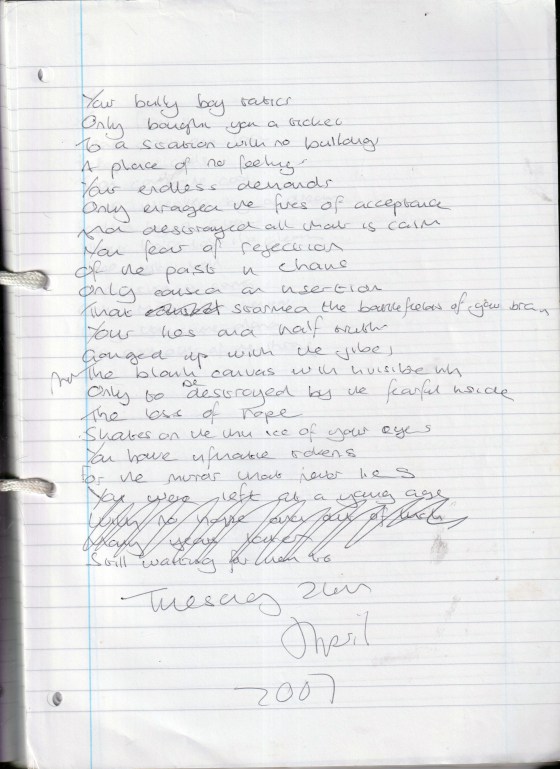 Your bully boy tatics
Only bought you a ticket
To a station with no buildings
A place of no feelings
Your endless demands
Only enraged the fires of acceptance
destroyed all that is calm
Your fear of rejection
Of the past in chains
Only caused an insertion
That stormed the battlefields of your brain
Your lies and half truths
Ganged up with the vibes
The blank canvas with invisible ink
Only to be destroyed by the fearful inside
The loss of hope
Skates on the thin ice of your eyes
You have infinate tokens
For the mirror that never lies
You were left at a young age
with no hope and out of
many years
Still waiting for them to
Tuesday
April
2007